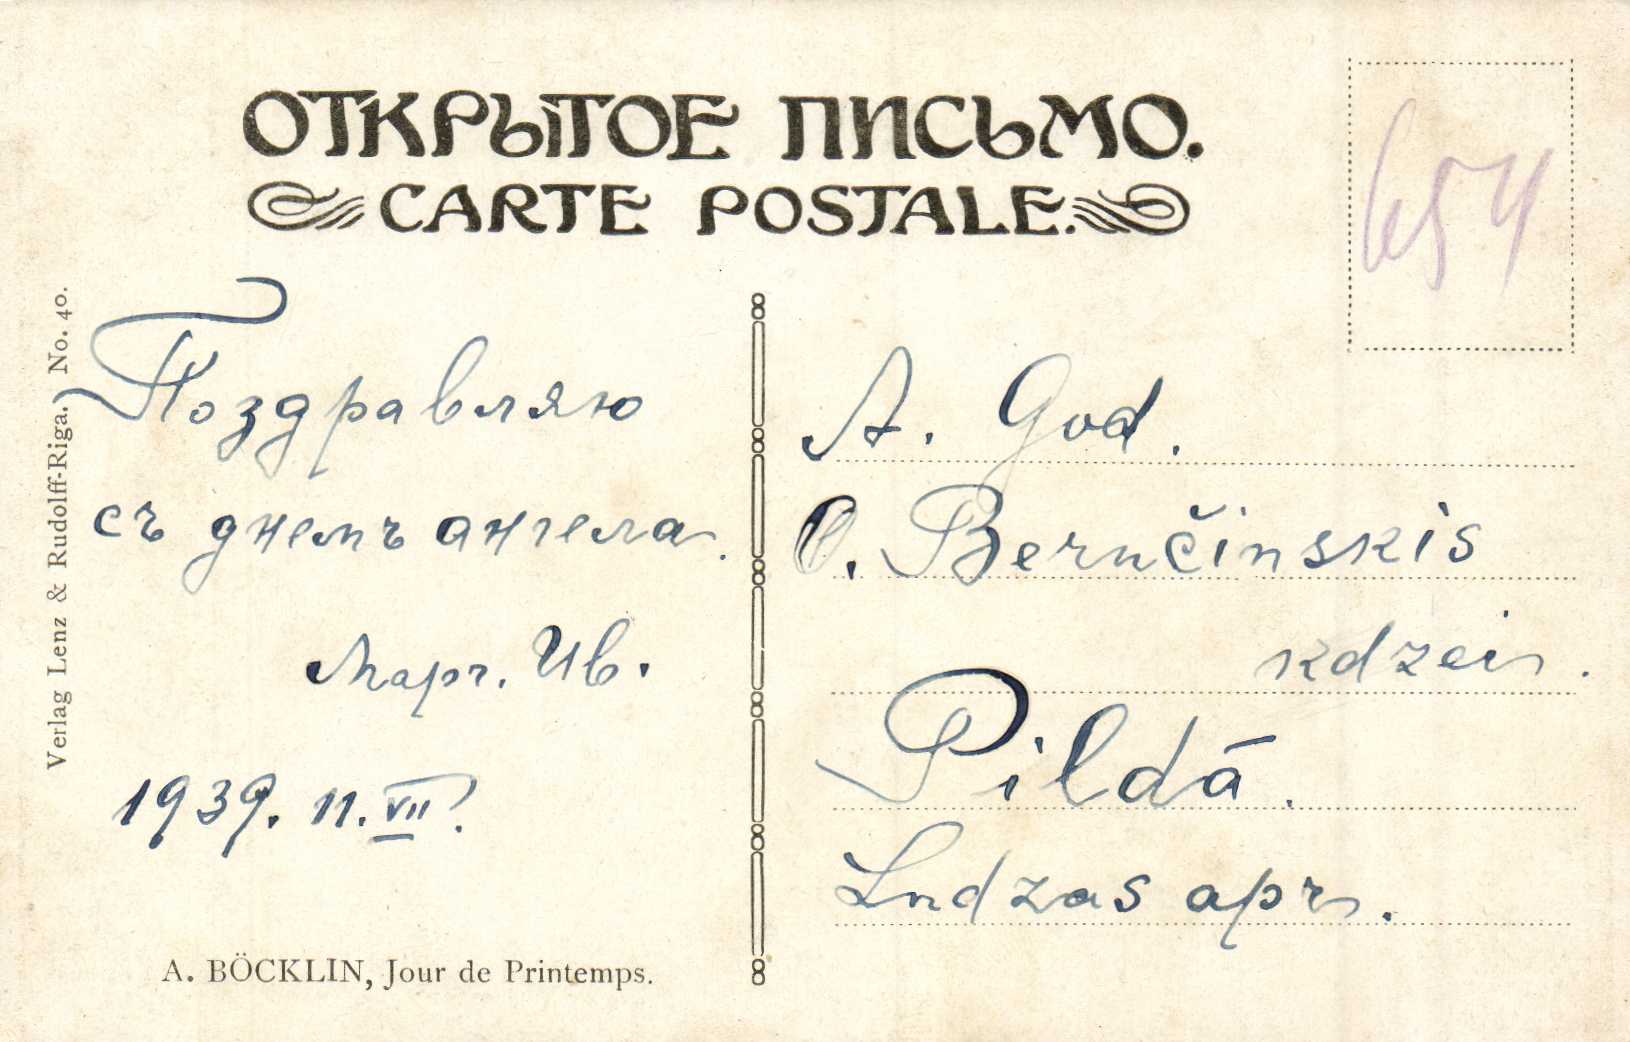 ОТКРЫТОЕ ПИСЬМО.
CARTE POSTALE.
654
Verlag Lenz & Rudolff-Riga. No. 40.
Поздравляю
съ днемъ ангела.
Марг. Ив.
1939. 11. VII.
A. God.
O. Bernčinskis
kdzei.
Pildā.
Ludzas apr.
A. BÖCKLIN, Jour de Printemps.